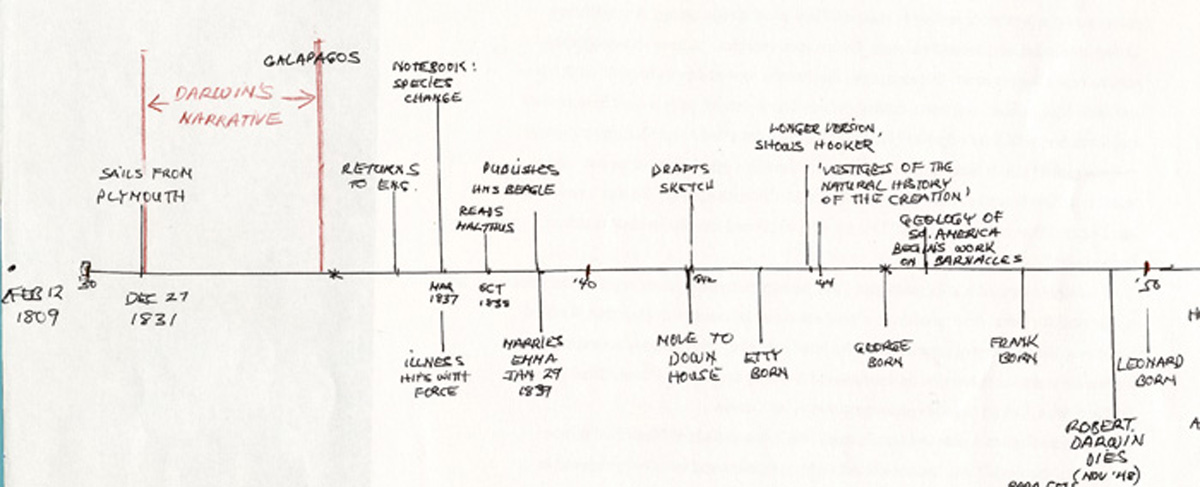 GALAPAGOS
DARWIN'S
NARRATIVE
NOTEBOOK:
SPECIES
CHANGE
SAILS FROM
PLYMOUTH
RETURNS
TO ENG.
PUBLISHES
HMS BEAGLE
READS
MALTHUS
DRAFTS
SKETCH
LONGER VERSION,
SHOWS HOOKER
'VESTIGES OF THE
NATURAL HISTORY
OF THE CREATION'
GEOLOGY OF
SO. AMERICA
BEGINS WORK
ON BARNACLES
FEB 12
1809
'30
DEC 27
1831
MAR
1837
OCT
1838
'40
'44
'50
ILLNESS
HITS WITH
FORCE
MARRIES
EMMA
JAN 29
1839
MOVE TO
DOWN
HOUSE
ETTY
BORN
GEORGE
BORN
FRANK
BORN
LEONARD
BORN
ROBERT
DARWIN
DIES
(NOV '48)